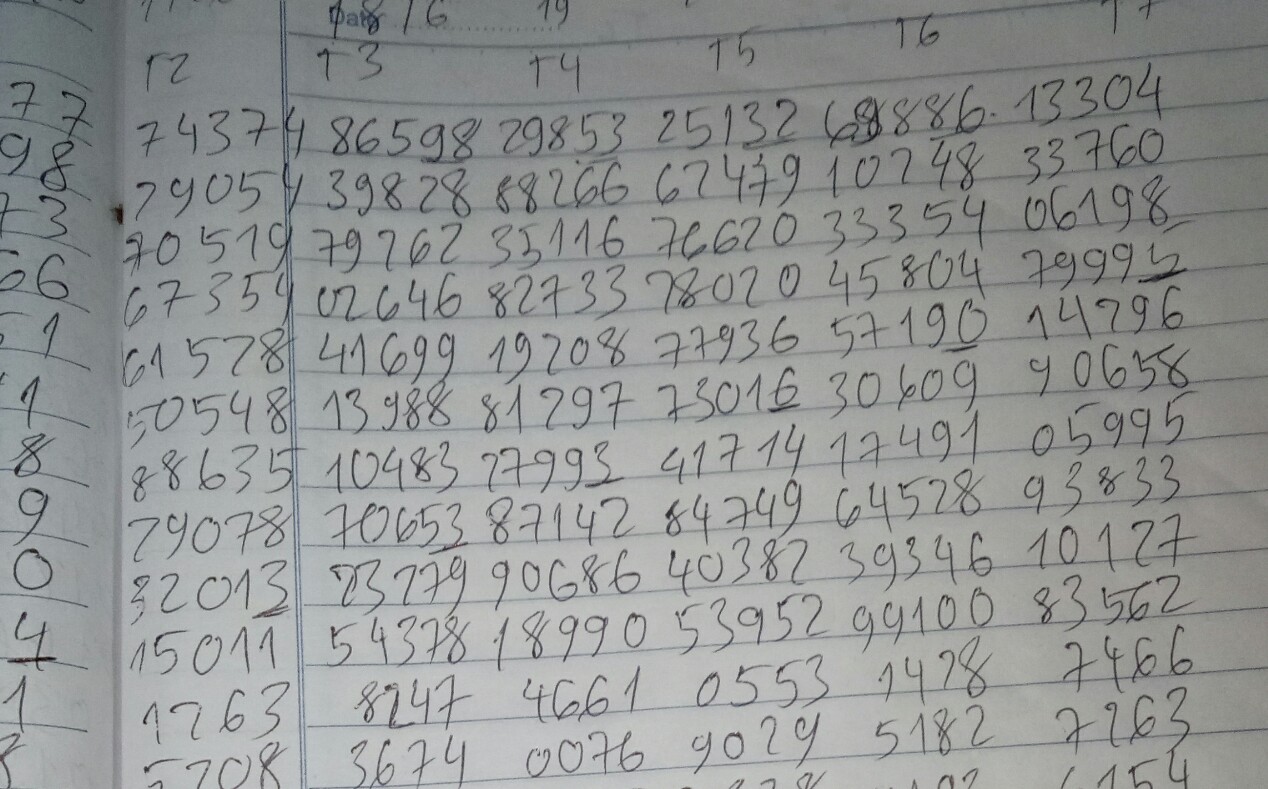 Date 18/6 19
T2 T3 T4 T5 T6 T7
77 74374 86598 29853 25132 68886. 13304
98 79054 39828 88266 67479 10748 33760
73 70519 79762 35116 76620 33354 06198
66 67354 02646 82733 78020 45804 79995
1 61578 41699 19708 77936 57190 14796
1 50548 13988 81797 73016 30609 90658
8 88635 10483 77993 41714 17491 05995
9 79078 70653 87142 84749 64578 93833
0 32013 73779 90686 40382 39346 10127
4 15011 54378 18990 53952 99100 83562
1 1763 8747 4661 0553 1478 7466
5708 3674 0076 9079 5182 7763